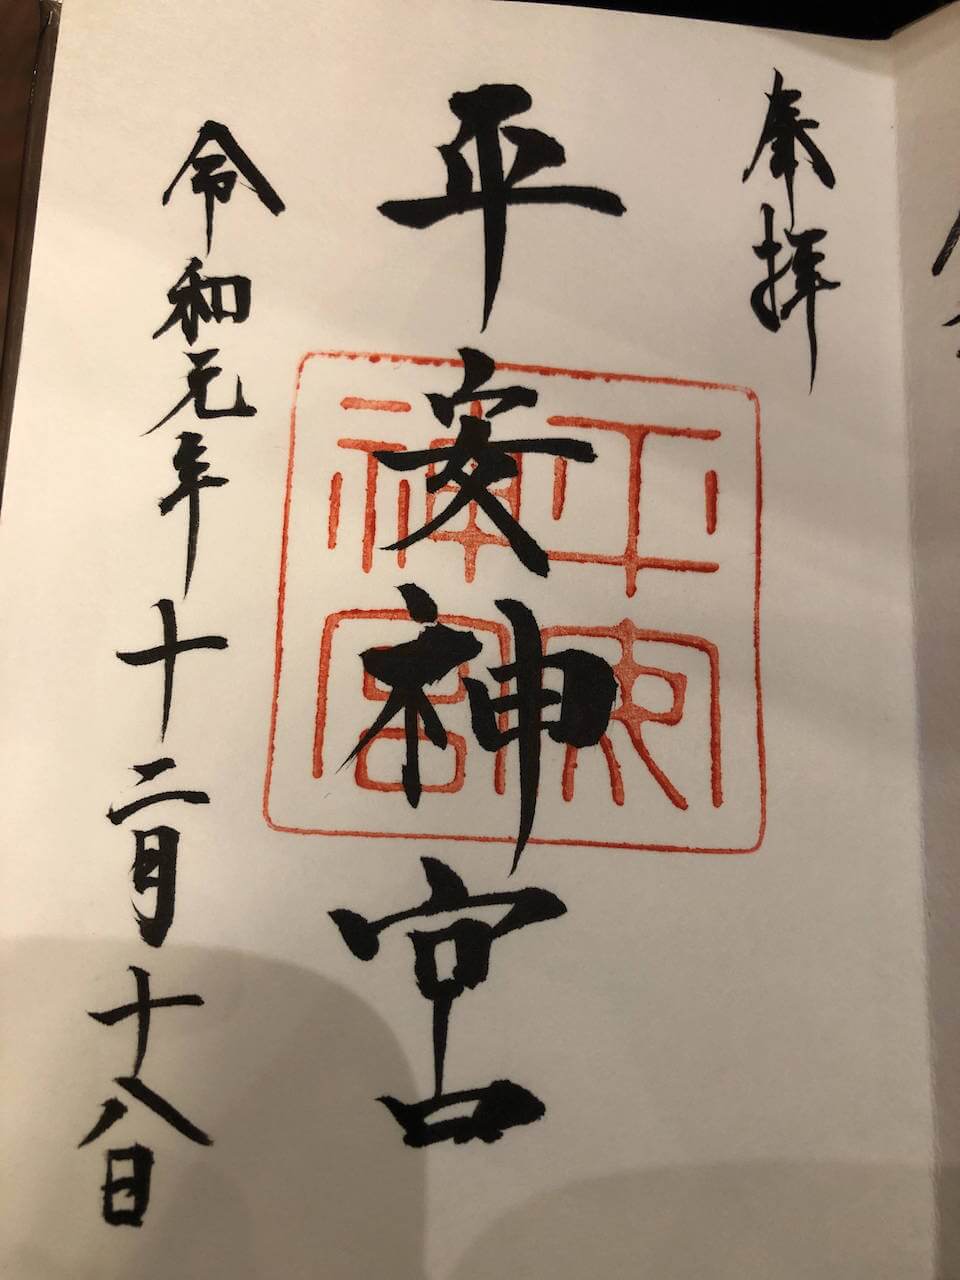 奉拝
平安神宮
平安神宮
令和元年十二月十八日